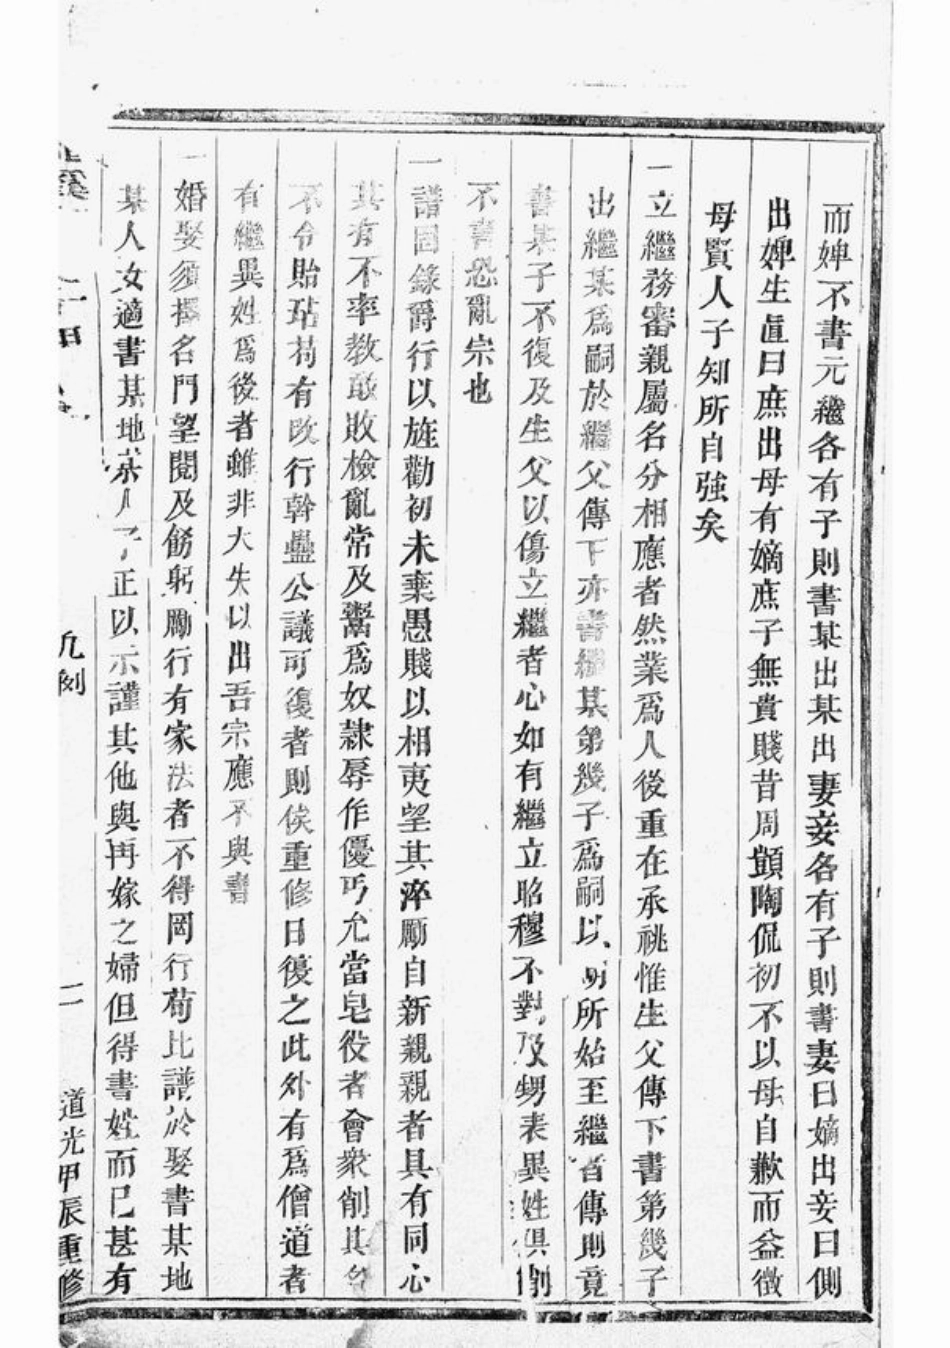 而婢不書元繼各有子則書某出某出妻妾各有子則書妻曰嫡出妾曰側
出婢生直曰庶出母有嫡庶子無貴賤昔周顗陶侃初不以母自歉而益徵
母賢人子知所自強矣
一立繼務審親屬名分相應者然業爲人後重在承祧惟生父傳下書第幾子
出繼某爲嗣於繼父傳下亦書繼某第幾子爲嗣以明所始至繼者傳則竟
書某子不復及生父以傷立繼者心如有繼立昭穆不對及甥表異姓俱削
不書恐亂宗也
一譜固錄爵行以旌勸初未棄愚賤以相夷望其淬勵自新親親者具有同心
其有不率教敢敗檢亂常及鬻爲奴隸辱作優丐允當皂役者會衆削其名
不令貽玷苟有改行幹蠱公議可復者則俟重修日復之此外有爲僧道者
有繼異姓爲後者雖非大失以出吾宗應不與書
一婚娶須擇名門望閥及飭躬勵行有家法者不得罔行苟比譜於娶書某地
某人女適書某地某人子正以示謹其他與再嫁之婦但得書姓而已甚有
凡例
二
道光甲辰重修